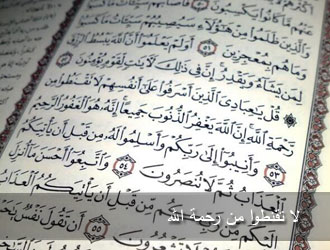 عنهم ما كانوا يكسبون ٥٠ فأصابهم
والذين ظلموا من هؤلاء سيصيبهم سيئات ما كسبوا
وما هم بمعجزين ٥١ أولم يعلموا أن الله يبسط الرزق
لمن يشاء ويقدر إن في ذلك لآيات لقوم يؤمنون ٥٢
قل يعبادي الذين أسرفوا على أنفسهم لا تقنطوا من
رحمة الله إن الله يغفر الذنوب جميعا إنه هو الغفور الرحيم
٥٣ وأنيبوا إلى ربكم وأسلموا له من قبل أن يأتيكم
العذاب ثم لا تنصرون ٥٤ واتبعوا أحسن ما أنزل
إليكم من ربكم من قبل أن يأتيكم العذاب
لا تقنطوا من رحمة الله
لا تشعرون ٥٥ أن تقول نفس